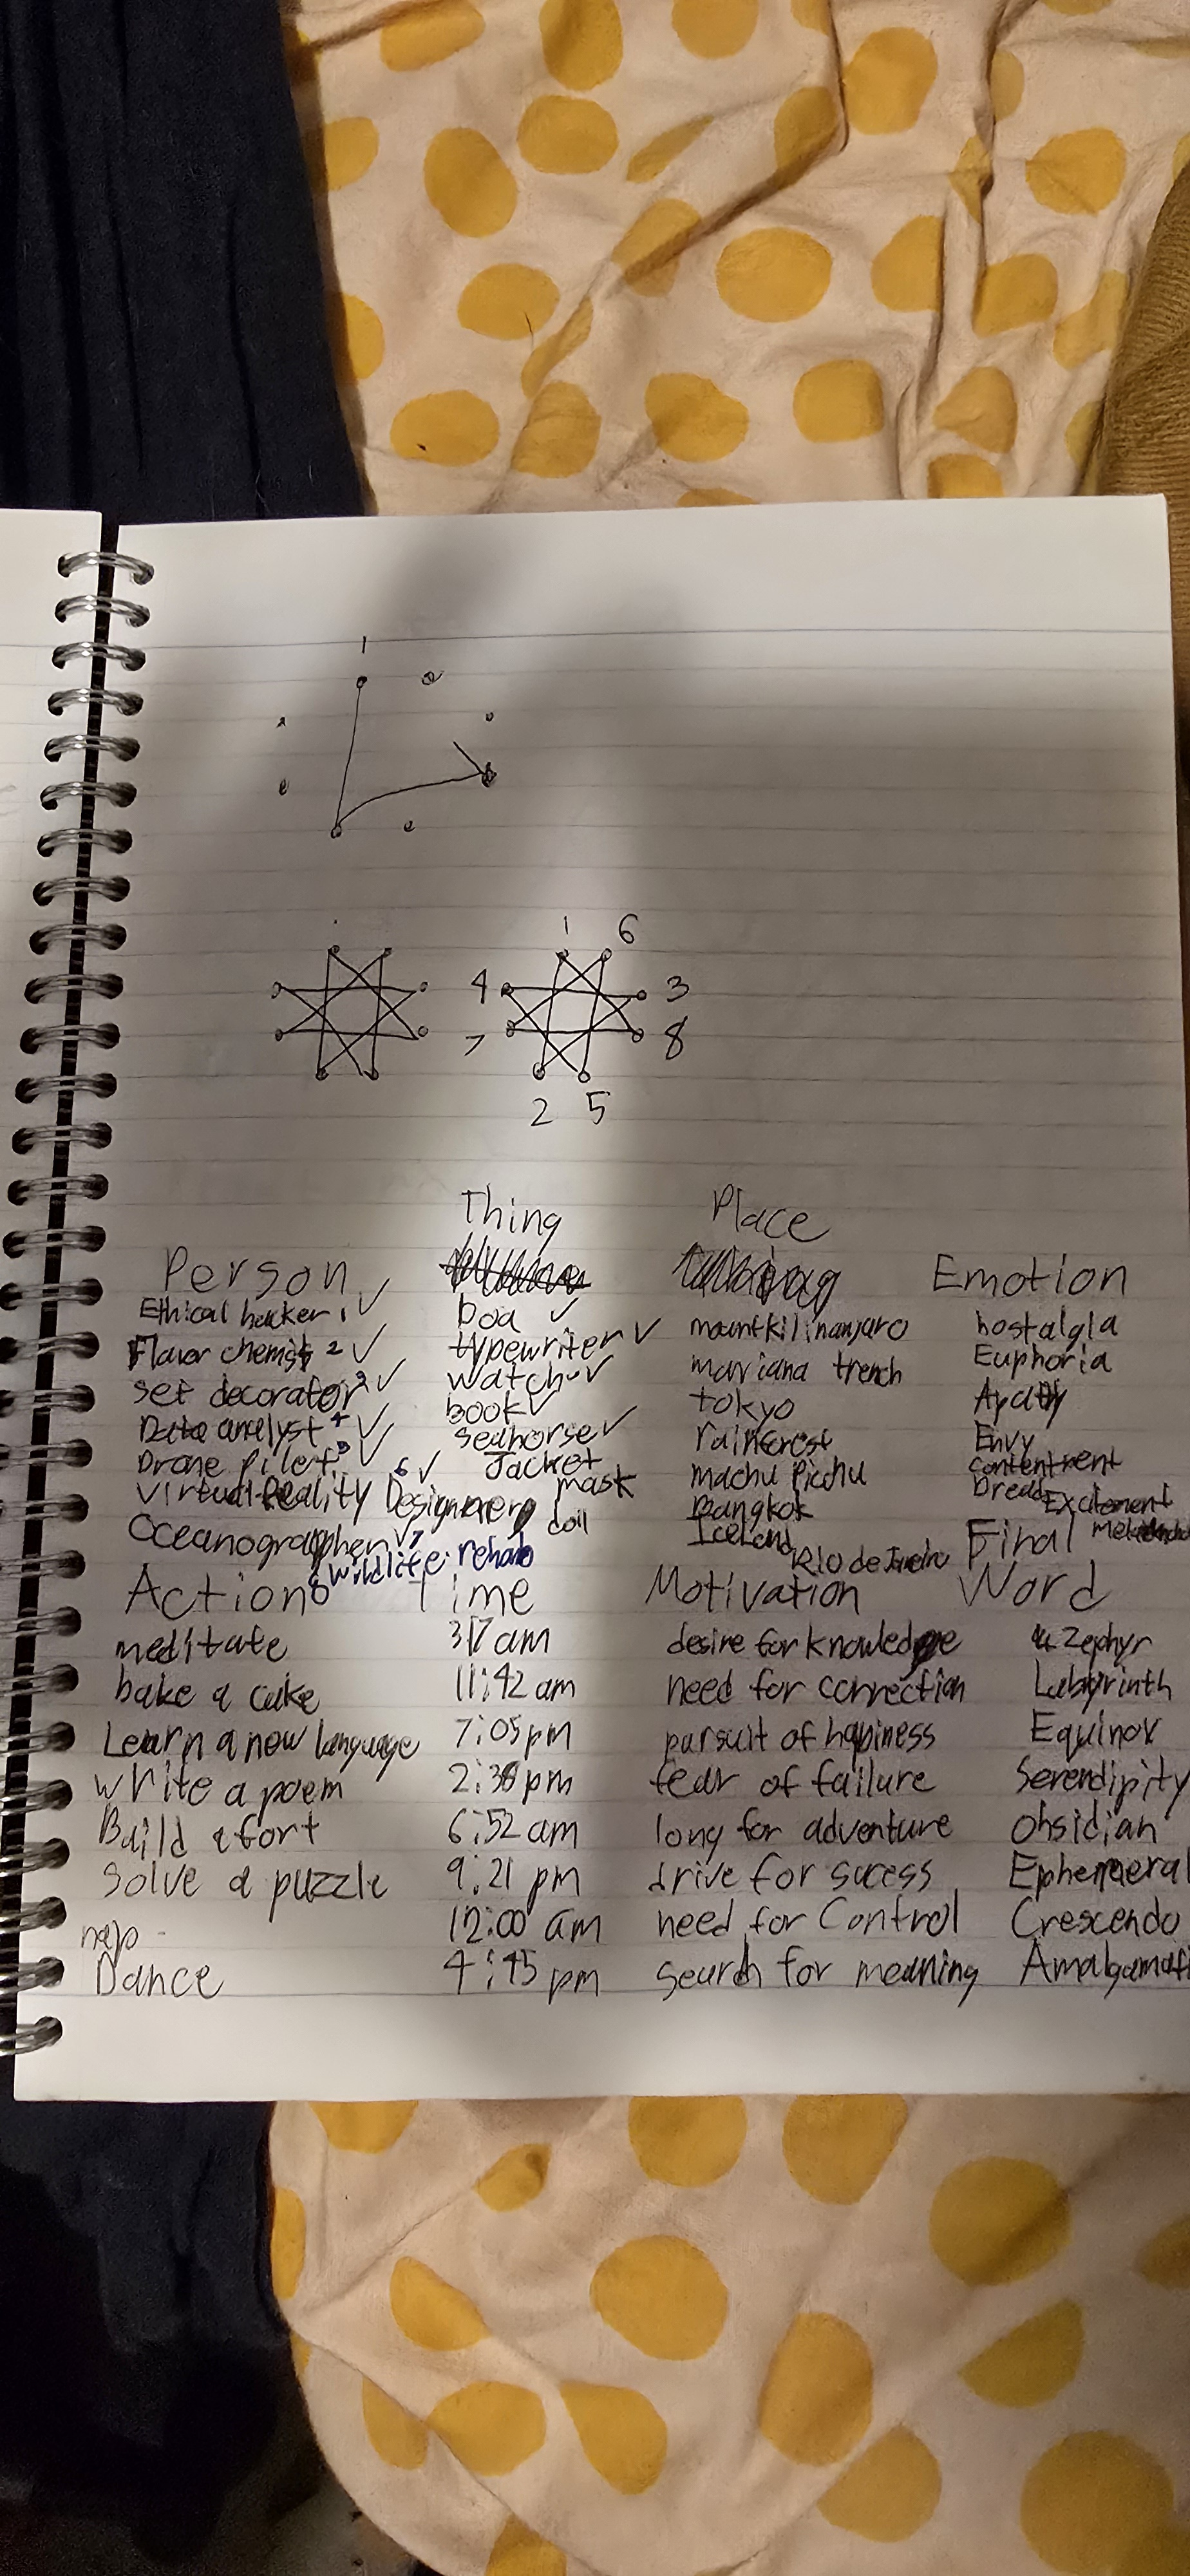 1
1 6
4 3
7 8
2 5
Thing Place
Person Emotion
Ethical hacker 1 ✓ boa ✓ mountkilinanjaro nostalgia
Flavor chemist 2 ✓ typewriter ✓ mariana trench Euphoria
set decorator 3 ✓ watch ✓ tokyo
analyst 4 ✓ book ✓ rainforest Envy
Drone Pilot 5 ✓ seahorse ✓ machu Picchu contentment
Virtual Reality Designer 6 ✓ Jacket mask Bangkok Dread Excitement
Oceanographer ✓ 7 coil Iceland Rio de Janeiro Final
8 wildlife rehab
Action Time Motivation Word
meditate 3:17 am desire for knowledge Zephyr
bake a cake 11:42 am need for connection Labyrinth
Learn a new language 7:05 pm pursuit of happiness Equinox
write a poem pm fear of failure Serendipity
Build a fort 6:52 am long for adventure obsidian
Solve a puzzle 9:21 pm drive for sucess Ephemeral
nap 12:00 am need for Control Crescendo
Dance 4:45 pm search for meaning Amalgamati